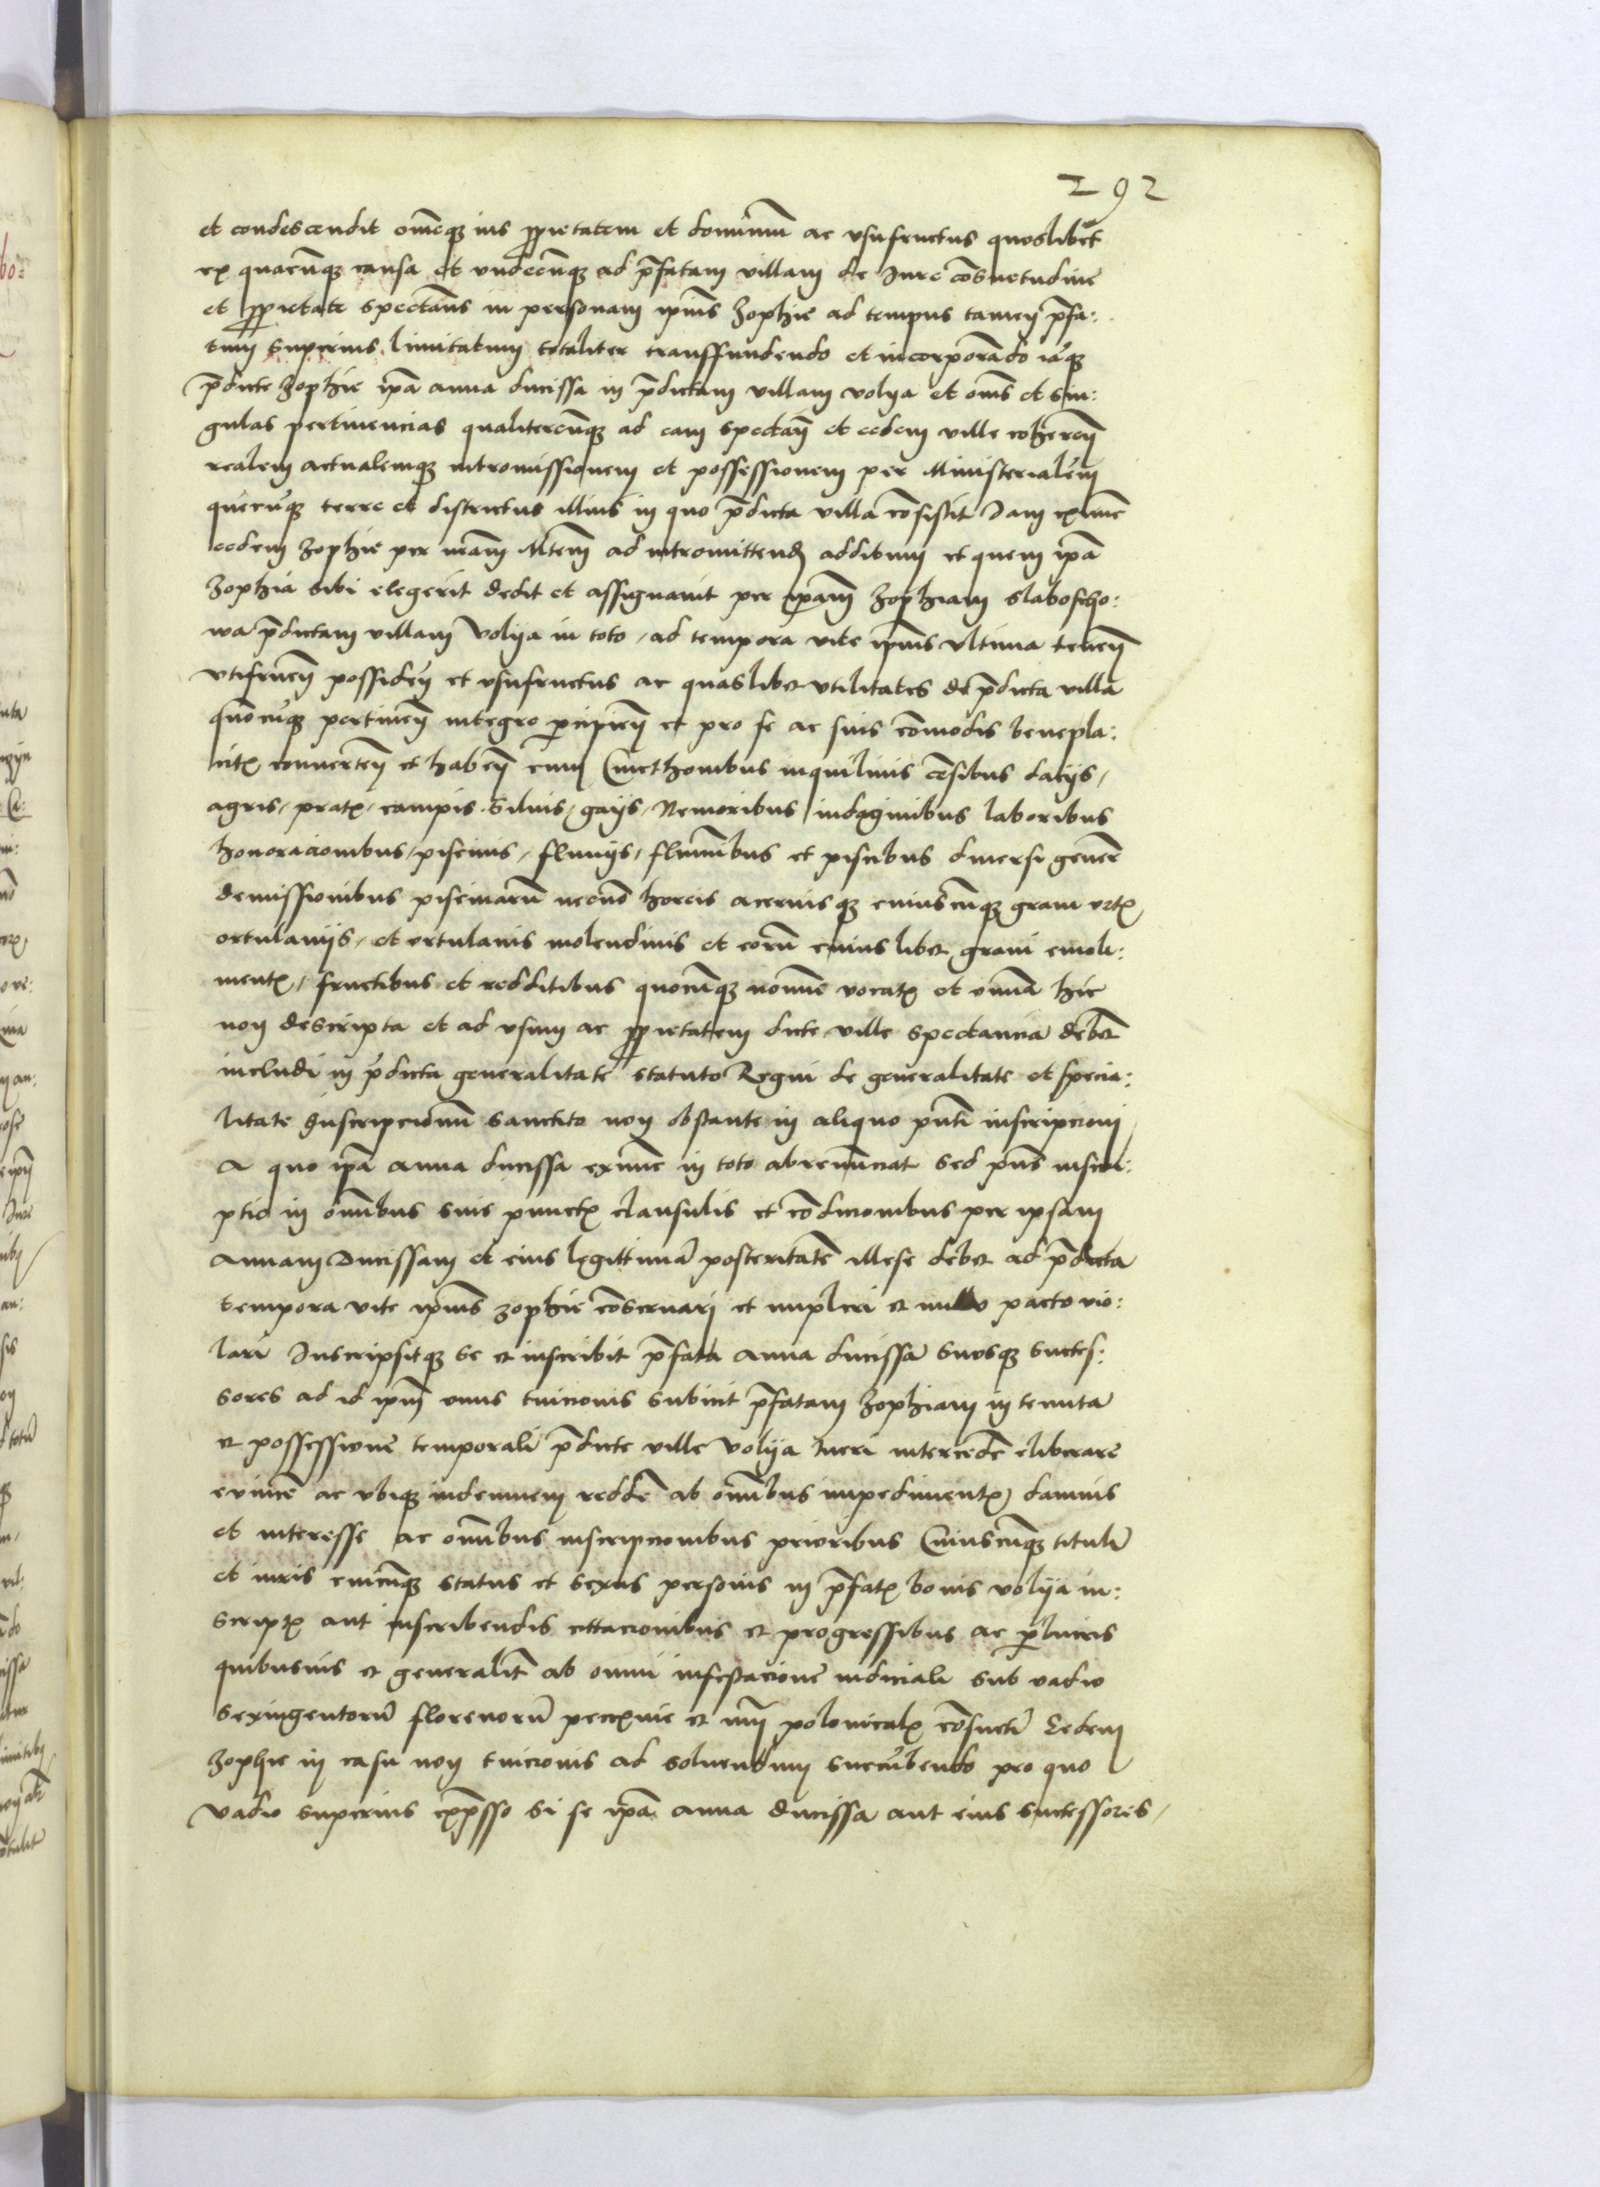 292
et condescendit omeqz ius ppietatem et dominium ac vsufructus quoslibet
ex quacunqz causa et undecunqz ad pfatam villam de Iure consuetudine
et ppietate spectans in personam ipius Zophie ad tempus tamen pfa:
tum superius limitatum totaliter transffundendo et incorporando
pdicte Zophie ipa anna ducissa in pdictam villam volya et oms et sin:
gulas pertinencias qualitercunqz ad eam spectan et eedem ville coheren
realem actualemqz intromissionem et possessionem per Ministerialem
quecuqz terre et districtus illius in quo pdicta villa consistit Iam extunc
eedem Zophie per Mtem ad intromittend additum et quem ipa
Zophia sibi elegerit dedit et assignavit per ipam Zophiam slaboscho:
wa pdictam villam Volya in toto, ad tempora vite ipius vltima tenen
vtifruen possiden et vsufructus ac quaslibet vtilitates de pdicta villa
quocuqz pertinen integro pcipien et pro se ac suis comodis benepla:
citx converten et haben cum Cmethonibus inquilinis censibus datijs,
agris, pratx, campis silvis, gaijs, Nemoribus indaginibus laboribus
honoracionibus, piscinis, fluvijs, fluminibus et piscibus diversi gener
demissionibus piscinarum necno horeis acervisqz cuiuscunqz grani ortx
ortulanijs, et ortulanis molendinis et eoru cuiuslibet grani emoli:
mentx, fructibus et redditibus quocumqz nomine vocatx et omnia hic
non descripta et ad vsum ac ppietatem dicte ville spectancia debet
includi in pdicta generalitate statuto Regni de generalitate et specia:
litate Inscripcionum sanctito non obstante in aliquo pnti inscripcioni
A quo ipa anna ducissa extunc in toto abrenunciat sed pns inscri:
ptio in omibus suis punctx clausulis et condicionibus per ipsam
Annam Ducissam et eius legittima posteritate illese debet ad pdicta
tempora vite ipius zophie conservari et impleri et nullo pacto vio:
lari Inscripsitqz se et inscribit pfata Anna ducissa suosqz succes:
sores ad id ipm onus tuicionis subicit pfatam Zophiam in tenuta
et possessione temporali pdicte ville Volya tueri intercede eliberare
evince ac vbiqz indemnem redde ab omibus impedimentx, damnis
et interesse ac omibus inscripcionibus prioribus Cuiuscunqz tituli
et iuris cuicunqz status et sexus personis in pfatx bonis volya in:
scriptx aut inscribendis cittacionibus et progressibus ac plucris
quibusvis et generalit ab omni infestacione iudiciali sub vadio
sexingentoru florenoru pecunie et polonicalx consueti Eedem
Zophie in casu non tuicionis ad solvendum succubendo pro quo
vadio superius expsso si se ipa anna ducissa aut eius successores,